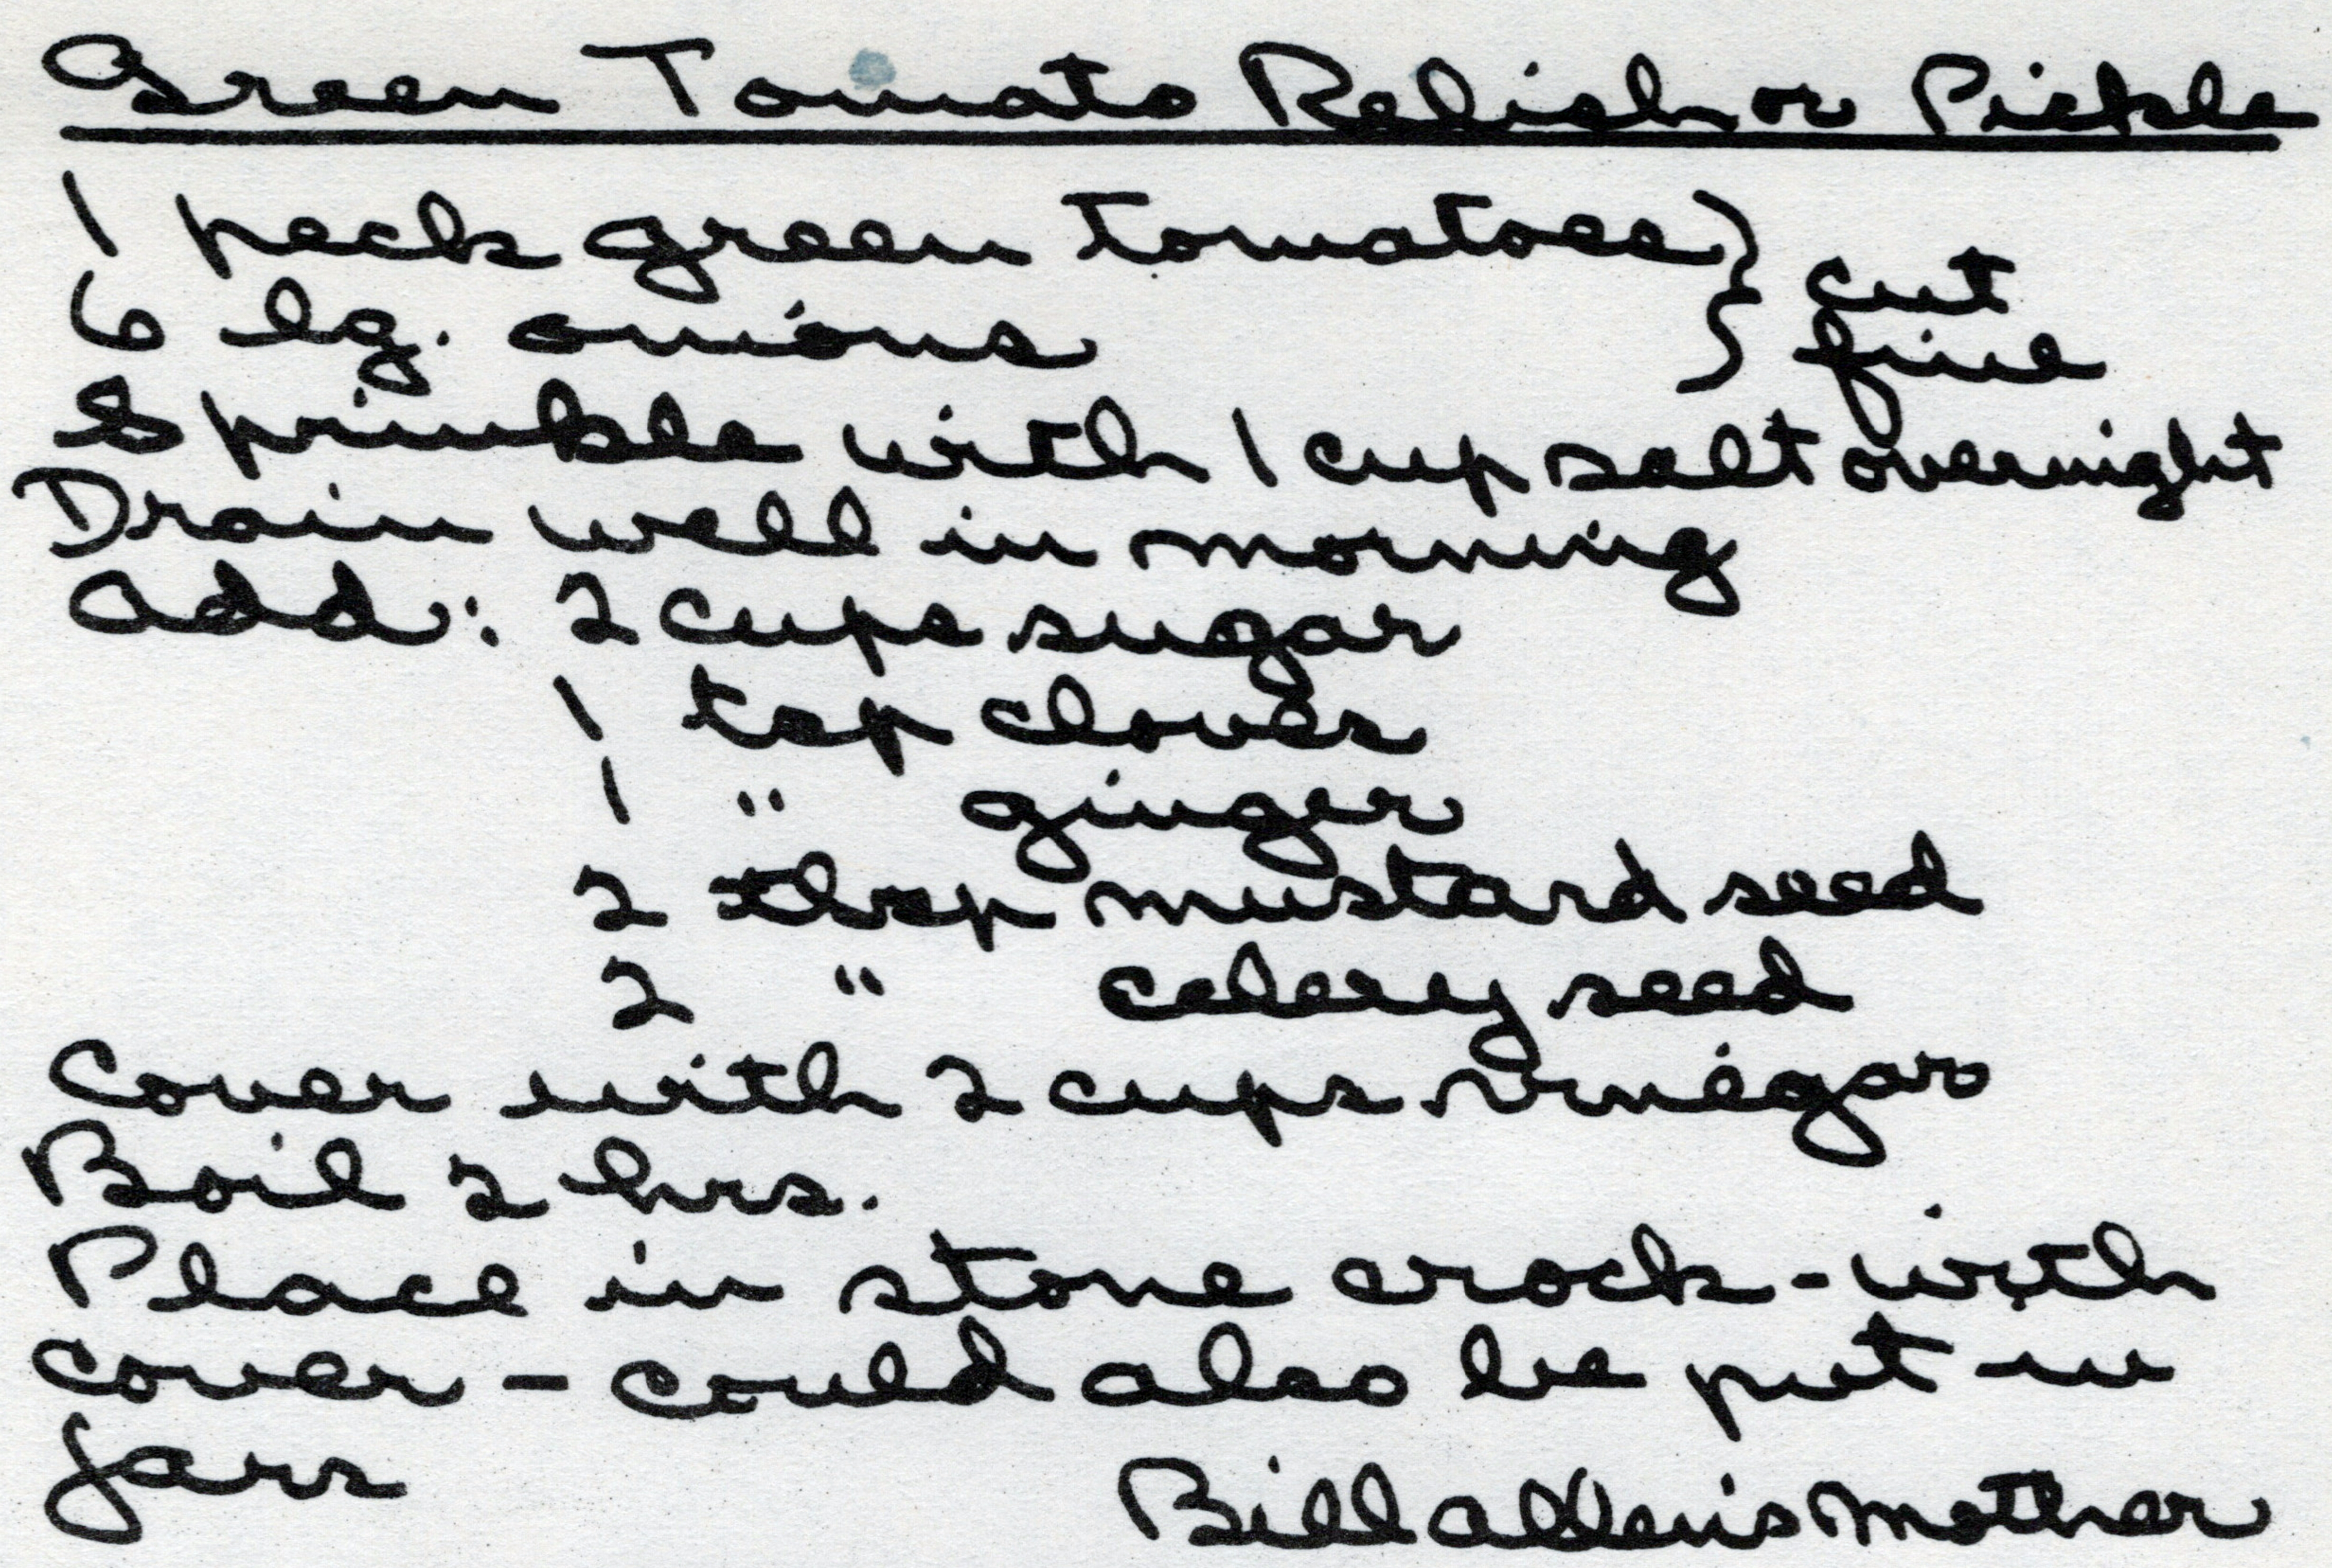 Green Tomato Relish or Pickle
1 peck green tomatoes } cut
6 lg. onions } fine
Sprinkle with 1 cup salt overnight
Drain well in morning
Add: 2 cups sugar
1 tsp cloves
1 " ginger
2 tbsp mustard seed
2 " celery seed
Cover with 2 cups vinegar
Boil 2 hrs.
Place in stone crock - with
cover - could also be put in
jars
Bill Allen's Mother